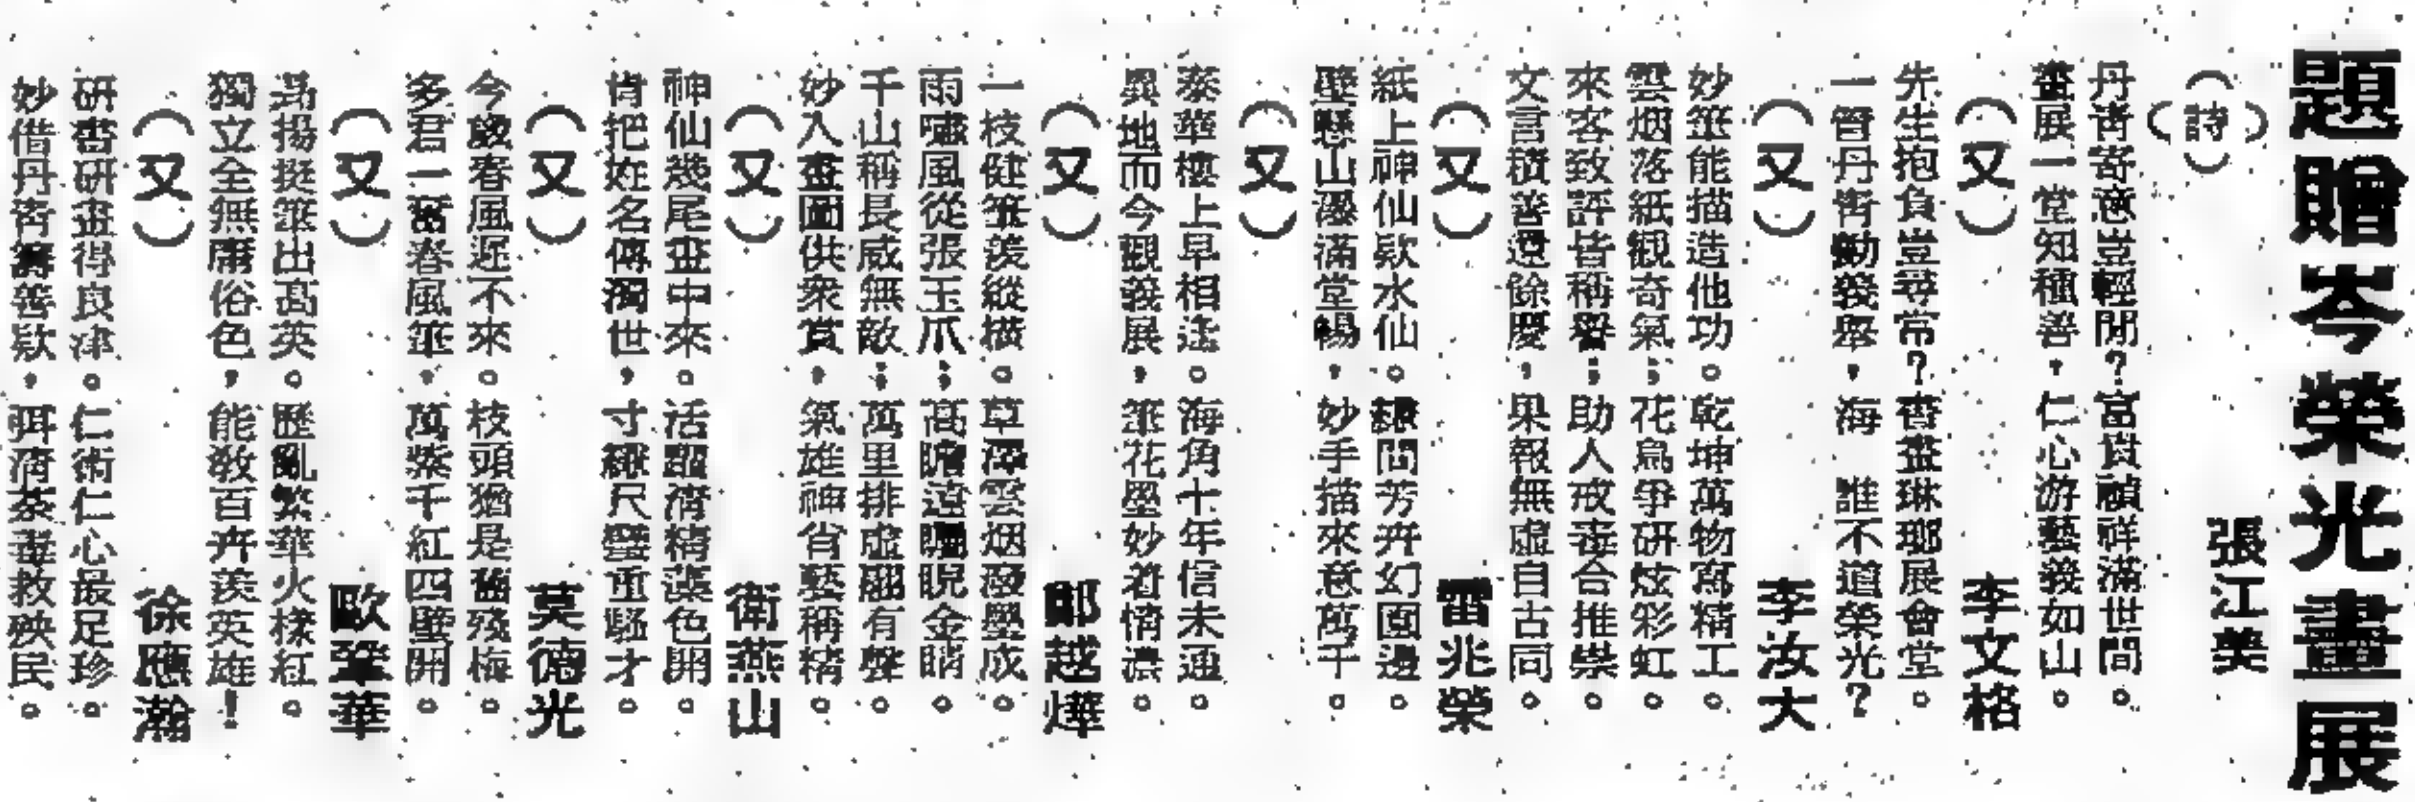 題贈岑榮光畫展
(詩) 張江美
丹青寄意豈輕閒?富貴禎祥滿世間。
畫展一堂知種善,仁心游藝義如山。
(又) 李文格
先生抱負豈尋常?書畫琳瑯展會堂。
一管丹青勷義舉,海 誰不道榮光?
(又) 李汝大
妙筆能描造他功。乾坤萬物寫精工。
雲烟落紙觀奇氣;花鳥爭研炫彩虹。
來客致評皆稱譽;助人戒毒合推崇。
文言積善遺餘慶,果報無虛自古同。
(又) 雷兆榮
紙上神仙欵水仙。隸間芳卉幻園邊。
壁懸山瀑滿堂暢,妙手描來意萬千。
(又)
泰華樓上早相逢。海角十年信未通。
異地而今觀義展,筆花墨妙着情濃。
(又) 鄭越燁
一枝健筆羨縱橫。草澤雲烟潑墨成。
雨嘯風從張玉爪;高瞻遠矚睨金睛。
千山稱長威無敵;萬里排虛翮有聲。
妙入畫圖供衆賞,氣雄神省藝稱精。
(又) 衛燕山
神仙幾尾畫中來。活躍濟精藻色開。
肯把姓名傳濁世,寸縑尺璧重騷才。
(又) 莫德光
今歲春風遲不來。枝頭猶是舊殘梅。
多君一奮春風筆,萬紫千紅四壁開。
(又) 歐筆華
爲揚挺筆出高英。歷亂繁華火樣紅。
獨立全無庸俗色,能敎百卉羨英雄!
(又) 徐應瀚
研書研畫得良津。仁術仁心最足珍。
妙借丹青籌善欵,弭淸荼毒救殃民。